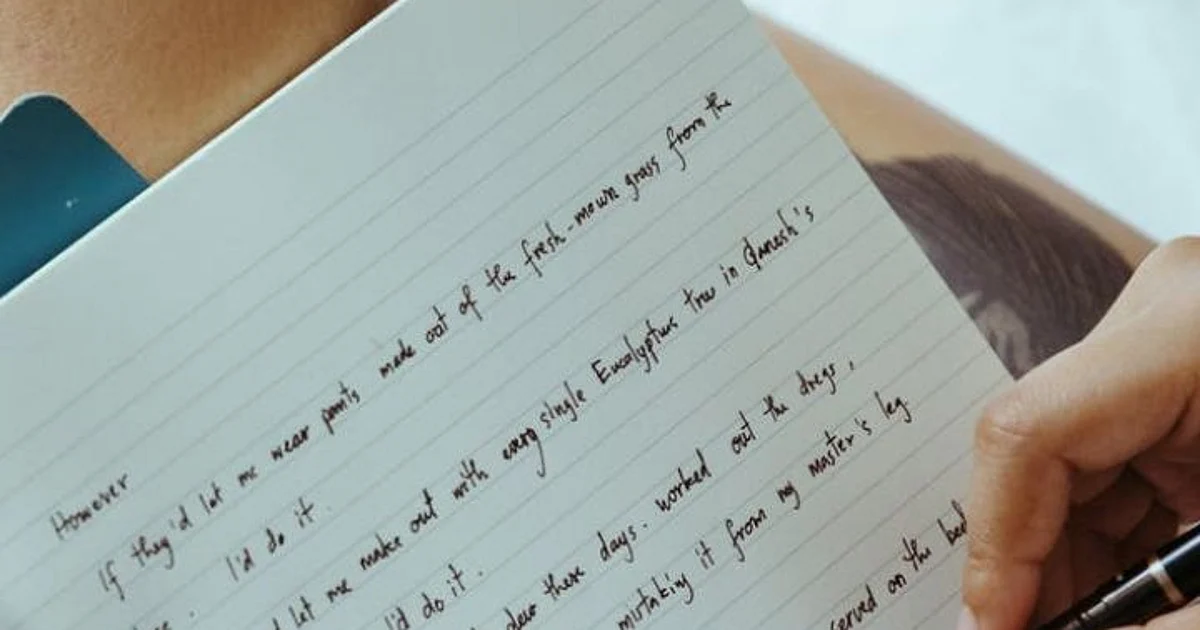 However
If they'd let me wear pants made out of the fresh-mown grass from the
I'd do it.
let me make out with every single Eucalyptus tree in Ganesh's
I'd do it.
these days. worked out the dregs,
mistaking it from my master's leg
served on the bed